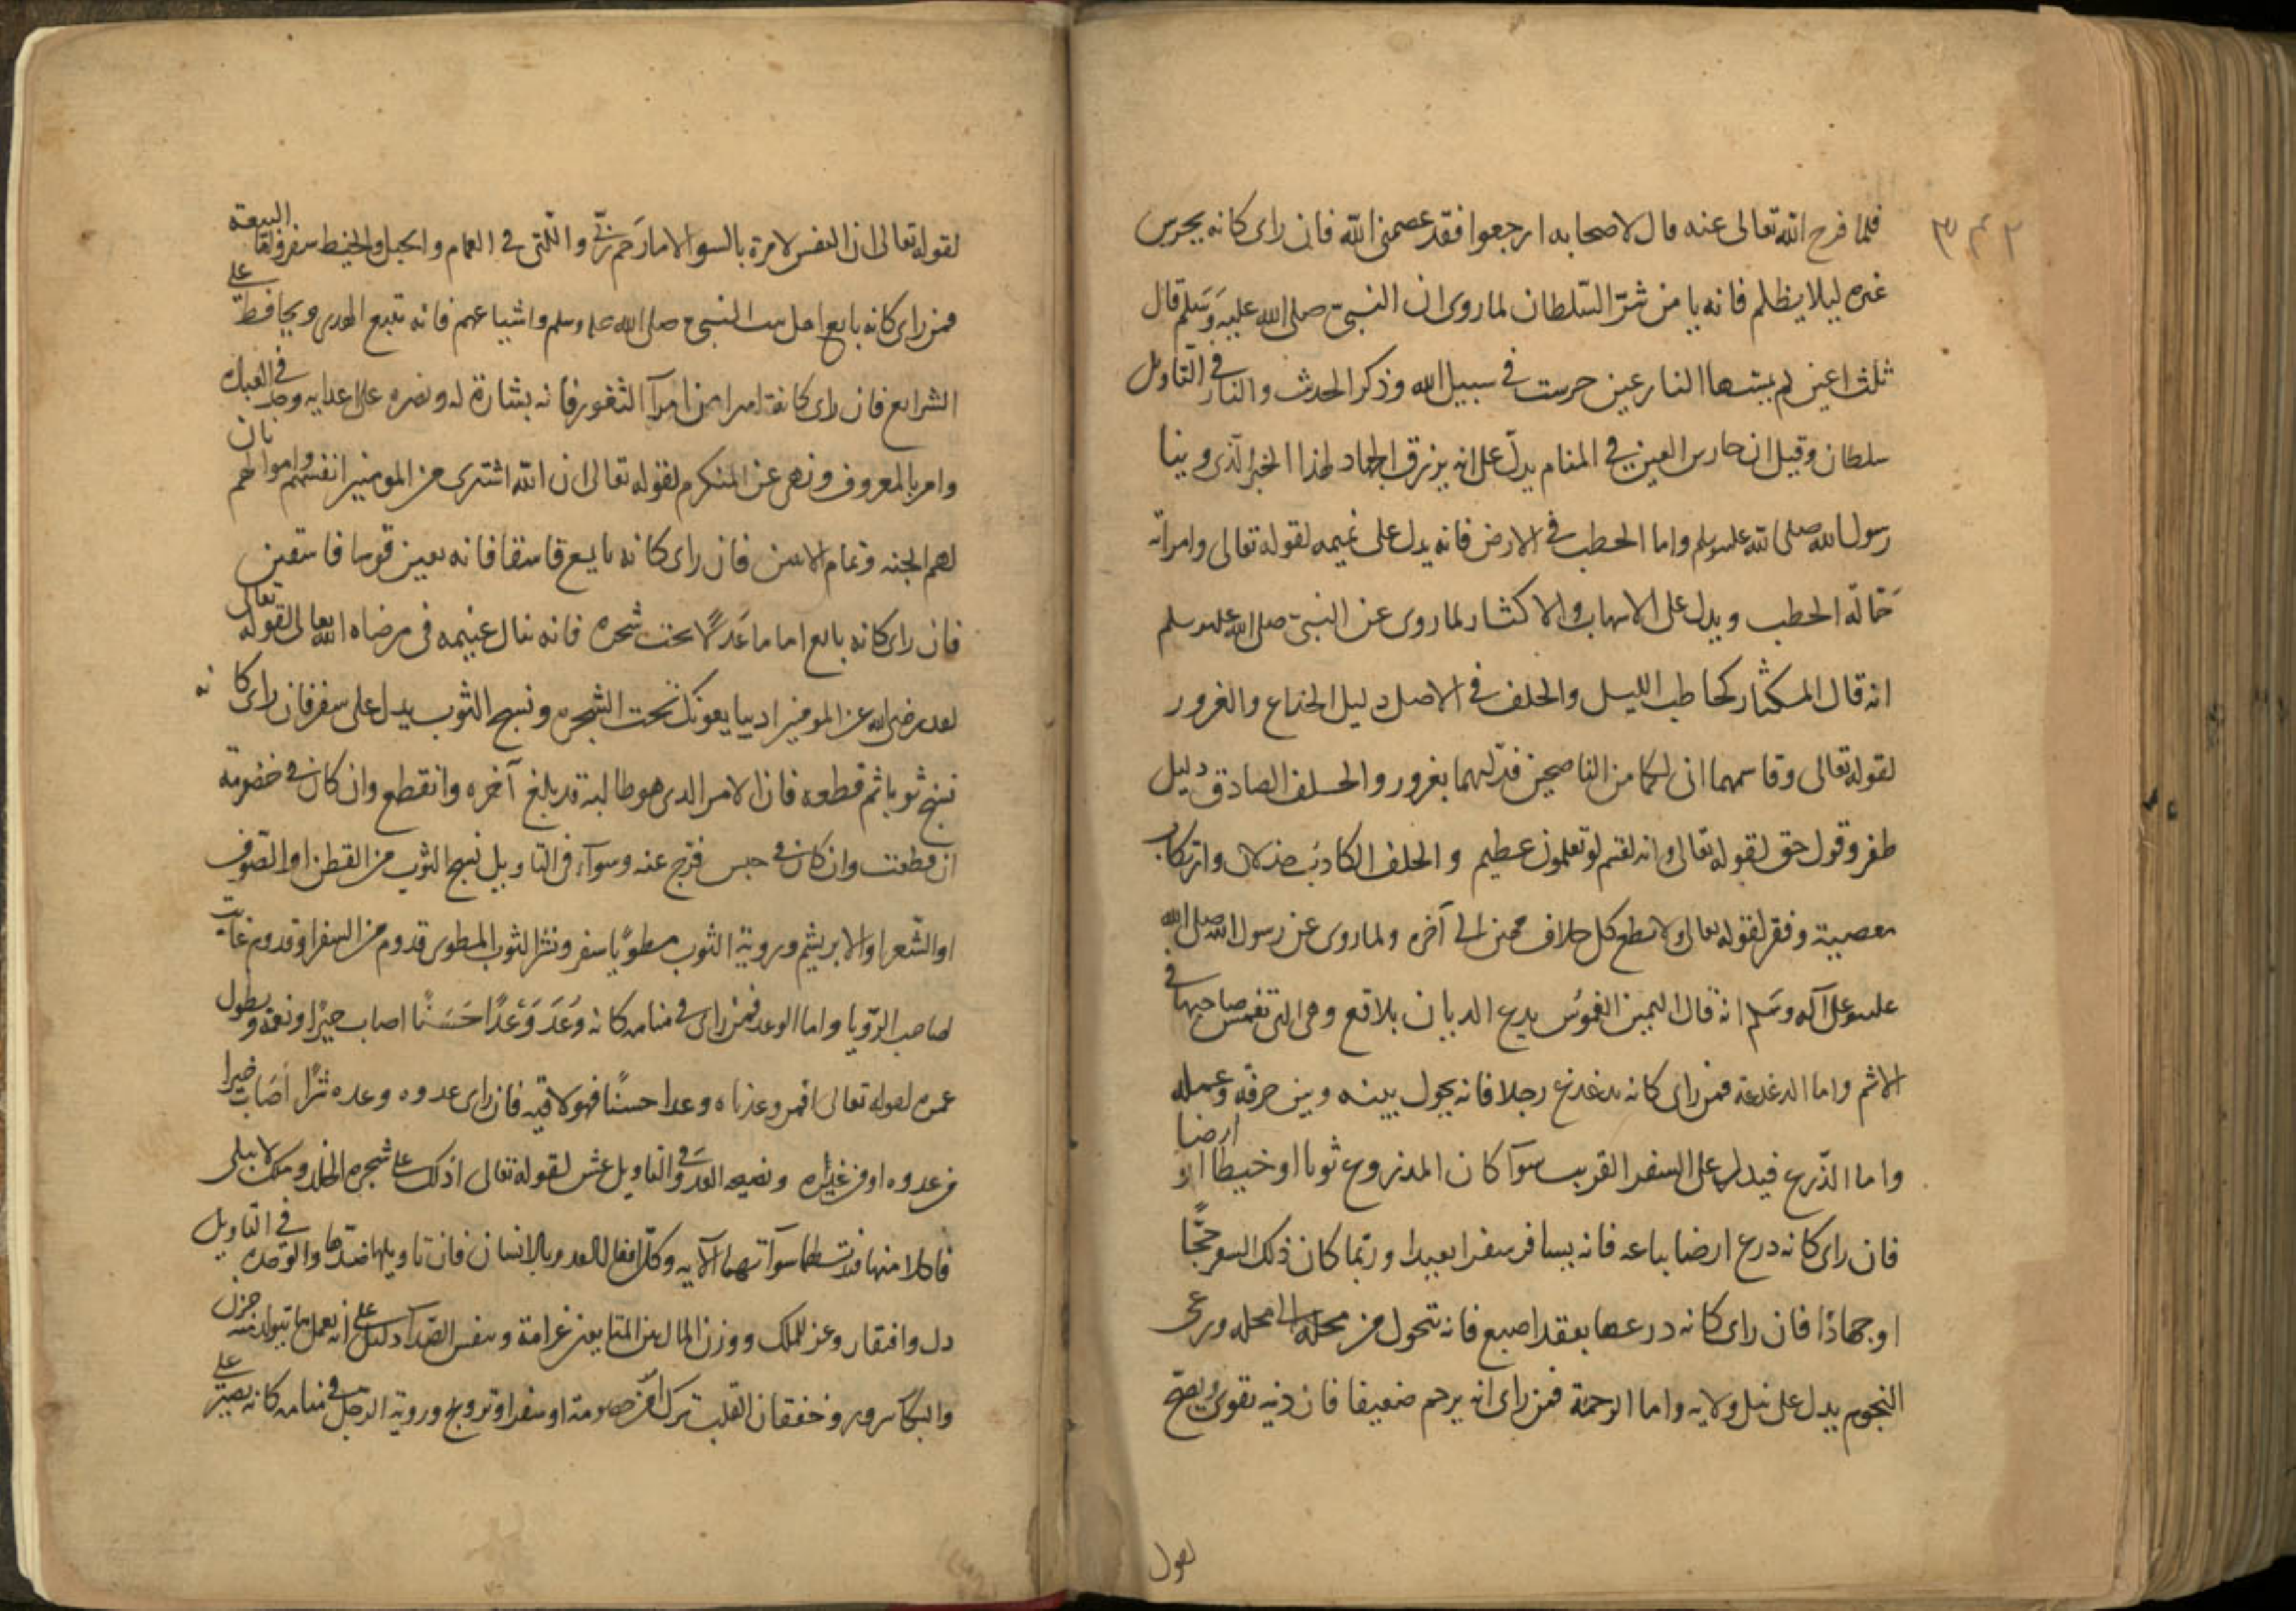 ٣٤٢
فلما فرح الله تعالى عنه قال لاصحابه ارجعوا فقد عصمنى الله فان راى كانه يحرس
غيره ليلا يظلم فانه يامن شرّ السّلطان لما روى ان النبىّ صلى الله عليه وسَلم قال
ثلث اعين لم يمسّها النار عين حرست فى سبيل الله وذكر الحدث والنار فى التاويل
سلطان وقيل ان حارس العين فى المنام يدلّ على انه يرزق الجهاد لهذا الخبر الّذى روينا
رسول الله صلى الله عليه وسلم واما الحطب فى الارض فانه يدل على نميمه لقوله تعالى وامراته
حَمّالة الحطب ويدل على الاسهاب والاكثار لما روى عن النبىّ صلى الله عليه وسلم
انه قال المكثار كحاطب الليل والحلف فى الاصل دليل الخداع والغرور
لقوله تعالى وقاسمهما انى لكما من الناصحين فدلّيهما بغرور والحلف الصادق دليل
ظفر وقول حق لقوله تعالى وانه لقسم لو تعلمون عظيم والحلف الكاذب خذلان وارتكاب
معصية وفقر لقوله تعالى ولا تطع كل حلاف مهين الى آخره ولما روى عن رسول الله صلى الله
عليه وعلى آله وسَلم انه قال اليمين الغموُس يدع الديان بلاقع وهى التى تغمس صاحبها فى
الاثم واما الدغدغة فمن راى كانه يدغدغ رجلا فانه يحول بينه وبين حرفته وعمله
واما الذّرع فيدل على السفر القريب سوآ كان المذروع ثوبا او خيطا او ارضا
فان راى كانه ذرع ارضا بباعه فانه يسافر سفرا بعيدا وربّما كان ذلك السفر حجًّا
او جهادًا فان راى كانه ذرعها بعقد اصبع فانه يتحول من محلة الى محله ورعى
النجوم يدل على نيل ولايه واما الرحمة فمن راى انه يرحم ضعيفا فان دينه يقوى ويصحّ
لقول
لقوله تعالى ان النفس لامرة بالسوا الا ما رَحم ربّى والتى فى الحمام والحبل والخيط سفر ولقا البيعة
فمن راى كانه بايع اهل بيت النبىّ صلى الله عليه وسلم واشياعهم فانه يتبع الهدى ويحافظ على
الشرايع فان راى كانه بايع اميرا من امرآ الثغور فانه بشارة له ونصره على اعدايه وجد فى العباد
وامر بالمعروف ونهى عن المنكر لقوله تعالى ان الله اشترى من المومنين انفسهم واموالهم بان
لهم الجنه وتمام الايتين فان راى كانه بايع فاسقا فانه يعين قوما فاسقين
فان راى كانه بايع اماما عَدلاً تحت شجره فانه ينال غنيمه فى مرضاه الله تعالى لقوله تعالى
لقد رضى الله عن المومنين اذ يبايعونك تحت الشجره ونسج الثوب يدل على سفر فان راى كانه
نسج ثوبا ثم قطعه فان الامر الذى هو طالبه قد بلغ آخره وانقطع وان كان فى خصومة
انقطعت وان كان فى حبس فرّج عنه وسوآ فى التاويل نسج الثوب من القطن او الصّوف
او الشّعر او الابريشم وروية الثوب مطويًا سفر ونشر الثوب المطوى قدوم من السفر او قدوم غايب
لصاحب الرّويا واما الوعد فمن راى فى منامه كانه وُعَدَ وَعْدًا حَسَنًا اصاب خيرًا ونعمة ويطول
عمره لقوله تعالى افمن وعدناه وعدا حسنًا فهو لاقيه فان راى عدوه وعده شرًّا اصَابَ خيرا
من عدوه او من غيره ونصيحه العدوّ فى التاويل غش لقوله تعالى ادلك على شجره الخلد وملك لا يبلى
فاكلا منها فبدت لهما سوآتهما الآيه وكل افعال العدو بالانسان فان تاويلها ضدّها والوحده فى التاويل
ذل وافتقار وعزل للملك ووزن المال بين المتبايعين غرامة ونفس الصّعدآ دليل على انه يعمل ما يتولد منه حزن
والبكآ سرور وخفقان القلب ترك امر من خصومة او سفر او تزويج وروية الرجل فى منامه كانه يصبّر على